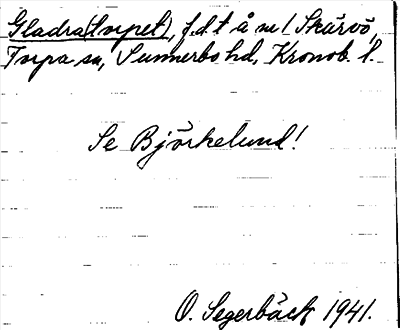 Gladra(torpet), f.d.t å nr 1 Skärvö,
Torpa sn, Sunnerbo hd, Kronob. l.
Se Björkelund!
O. Segerbäck 1941.